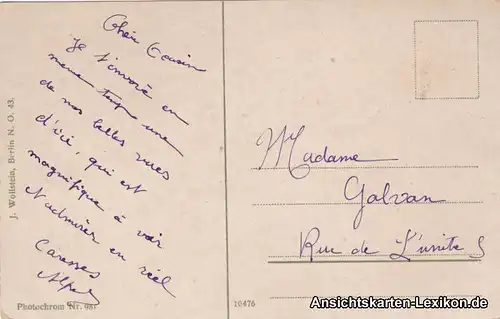 Cher Cousin
Je t'envoie en
meme temps une
de nos belles vues
d'ici, qui est
magnifique à voir
et admirer en réel
Caresses
J. Wollstein, Berlin N.-O. 43.
Photochrom Nr.
Madame
Galvan
Rue de L'unité
16476
Ansichtskarten-Lexikon.de